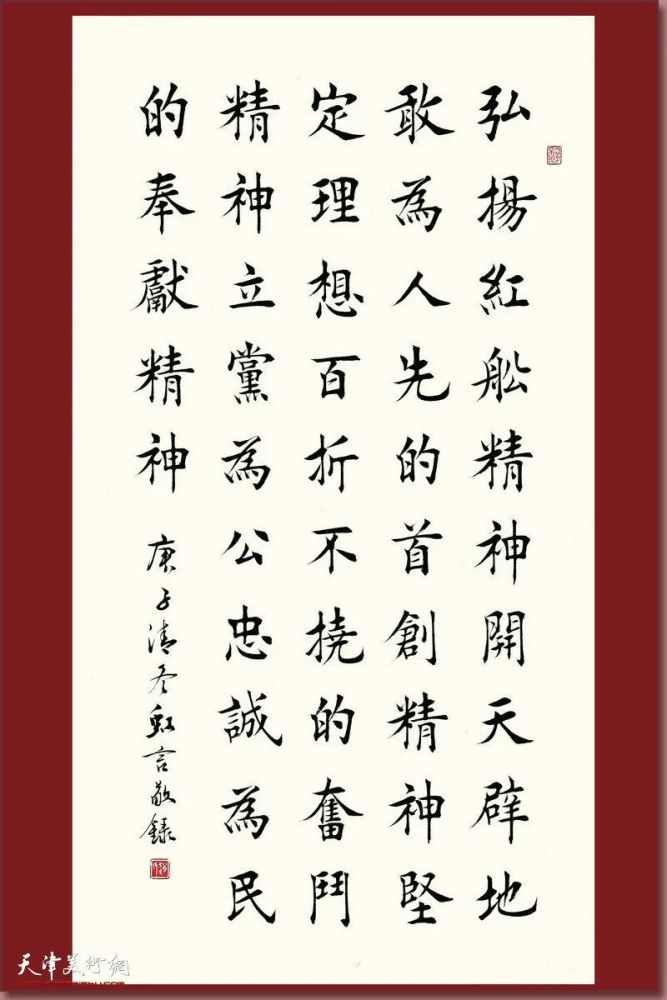 弘揚紅船精神開天辟地
敢為人先的首創精神堅
定理想百折不撓的奮鬥
精神立黨為公忠誠為民
的奉獻精神
庚子清冬虹言敬錄
天津美術網